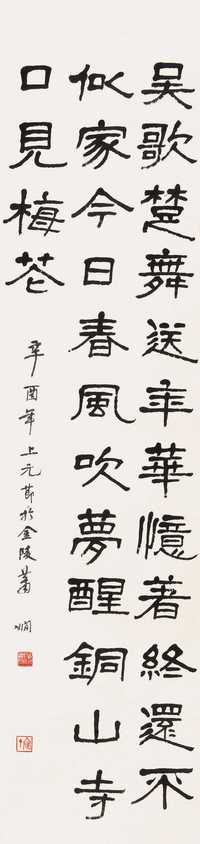 吴歌楚舞送年華憶著終還不
似家今日春風吹夢醒銅山寺
口見梅花
辛酉年上元節於金陵蕭嫻